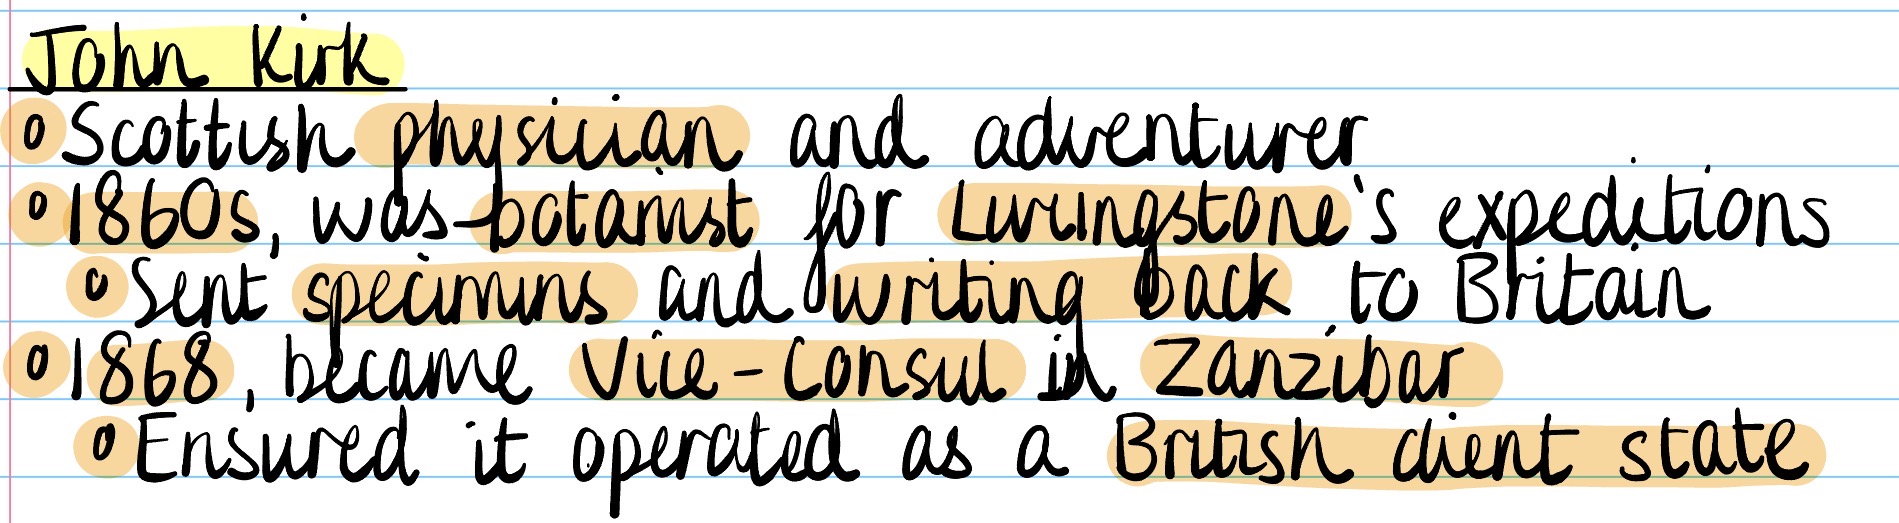 John Kirk
o Scottish physician and adventurer
o 1860s, was botanist for Livingstone's expeditions
o Sent specimins and writing back to Britain
o 1868, became Vice-Consul in Zanzibar
o Ensured it operated as a British client state